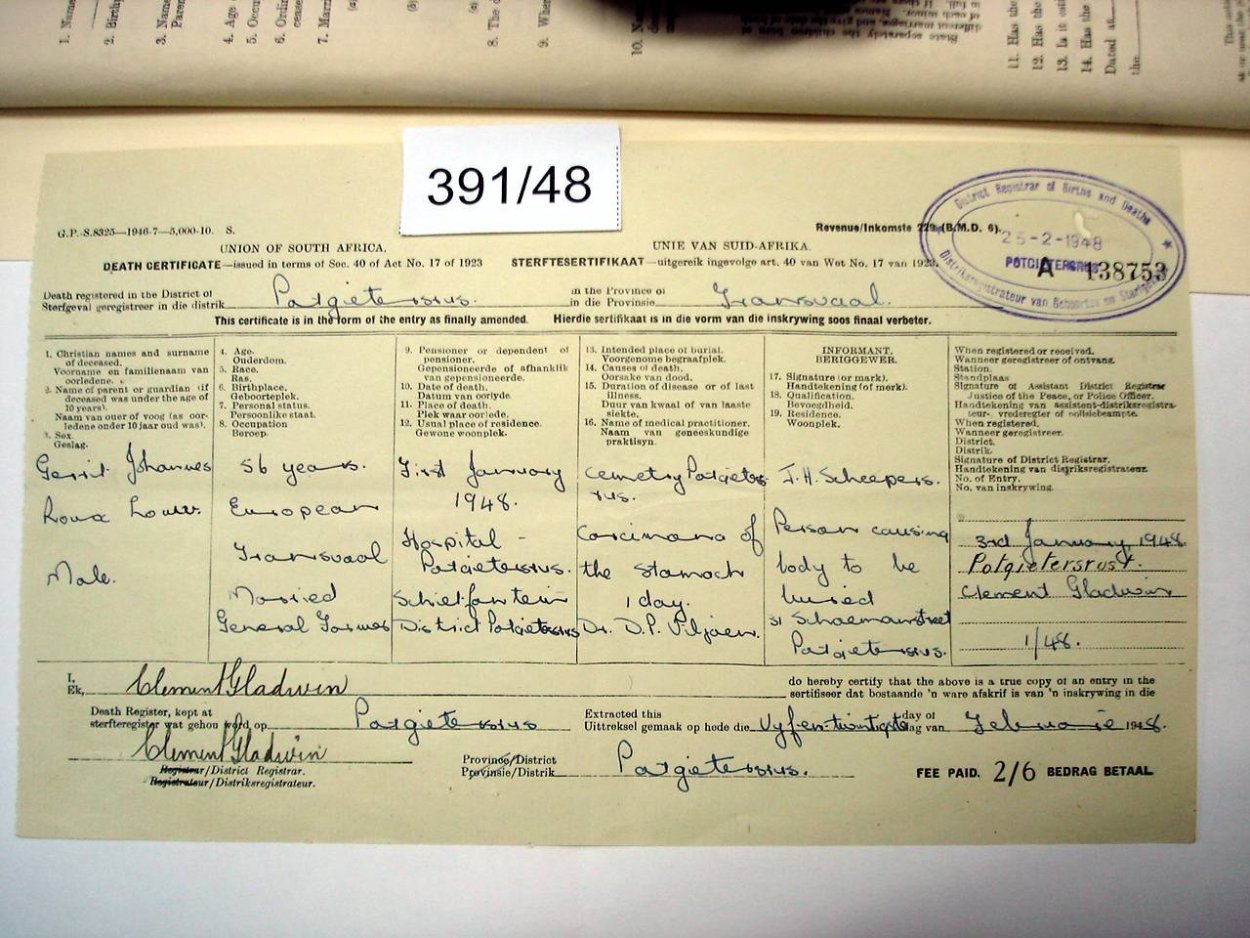 1. Name
2. Birthp
3. Nam
Paren
4. Age
5. Occu
6. Ordin
cease
7. Marri
(a)
(b)
(c)
8. The d
9. Wher
10. N
11. Has the
12. Has the
13. Is it
14. Has the
Dated at
the
391/48
G.P.-S.8325—1946-7—5,000-10. S.
Revenue/Inkomste 229 (B.M.D. 6).
District Registrar of Births and Deaths
25-2-1948
POTGIETERSRUS
Distriksregistrateur van Geboortes en Sterfgevalle
A 138753
UNION OF SOUTH AFRICA.
UNIE VAN SUID-AFRIKA.
DEATH CERTIFICATE—issued in terms of Sec. 40 of Act No. 17 of 1923
STERFTESERTIFIKAAT—uitgereik ingevolge art. 40 van Wet No. 17 van 1923.
Death registered in the District of
Sterfgeval geregistreer in die distrik
Potgietersrus.
in the Province of
in die Provinsie
Transvaal.
This certificate is in the form of the entry as finally amended. Hierdie sertifikaat is in die vorm van die inskrywing soos finaal verbeter.
1. Christian names and surname
of deceased.
Voorname en familienaam van
oorledene.
2. Name of parent or guardian (if
deceased was under the age of
10 years).
Naam van ouer of voog (as oor-
ledene onder 10 jaar oud was).
3. Sex.
Geslag.
Gerrit Johannes
Roux Louw.
Male.
4. Age.
Ouderdom.
5. Race.
Ras.
6. Birthplace.
Geboorteplek.
7. Personal status.
Persoonlike staat.
8. Occupation
Beroep.
56 years.
European
Transvaal
Married
General Farmer
9. Pensioner or dependent of
pensioner.
Gepensioneerde of afhanklik
van gepensioneerde.
10. Date of death.
Datum van oorlyde.
11. Place of death.
Plek waar oorlede.
12. Usual place of residence.
Gewone woonplek.
First January
1948.
Hospital -
Potgietersrus.
Schietfontein
District Potgietersrus
13. Intended place of burial.
Voorgenome begraafplek.
14. Causes of death.
Oorsake van dood.
15. Duration of disease or of last
illness.
Duur van kwaal of van laaste
siekte.
16. Name of medical practitioner.
Naam van geneeskundige
praktisyn.
Cemetry Potgieters
rus.
Carcinoma of
the stomach
1 day.
Dr. D.P. Viljoen.
INFORMANT.
BERIGGEWER.
17. Signature (or mark).
Handtekening (of merk).
18. Qualification.
Bevoegdheid.
19. Residence.
Woonplek.
J.H. Scheepers.
Person causing
body to be
buried
31 Schoemanstreet
Potgietersrus.
When registered or received.
Wanneer geregistreer of ontvang.
Station.
Standplaas
Signature of Assistant District Registrar
Justice of the Peace, or Police Officer.
Handtekening van assistent-distriksregistra-
teur- vrederegter of polisiebeampte.
When registered.
Wanneer geregistreer.
District.
Distrik.
Signature of District Registrar.
Handtekening van distriksregistrateur.
No. of Entry.
No. van inskrywing.
3rd January 1948
Potgietersrust.
Clement Gladwin
1/48.
I,
Ek,
Clement Gladwin
do hereby certify that the above is a true copy of an entry in the
sertifiseer dat bostaande 'n ware afskrif is van 'n inskrywing in die
Death Register, kept at
sterfteregister wat gehou word op
Potgietersrus
Extracted this
Uittreksel gemaak op hede die
Vyfentwintigste
day of
dag van
Februarie 1948.
Clement Gladwin
Registrar/District Registrar.
Registrateur/Distriksregistrateur.
Province/District
Provinsie/Distrik
Potgietersrus.
FEE PAID. 2/6 BEDRAG BETAAL